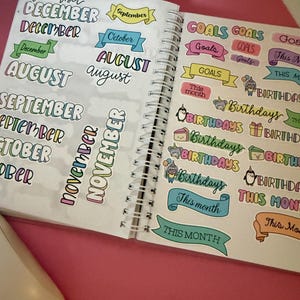 DECEMBER
December
December
AUGUST
SEPTEMBER
September
OCTOBER
OBER
September
October
AUGUST
August
NOVEMBER
NOVEMBER
GOALS
GOALS
Goals
GOALS
Goals
GOALS
This month
Birthdays
BIRTHDAYS
BIRTHDAYS
Birthdays
BIRTHDAYS
BIRTHDAYS
BIRTHDAY
Birthdays
This month
THIS MONTH
THIS MON
This Mo